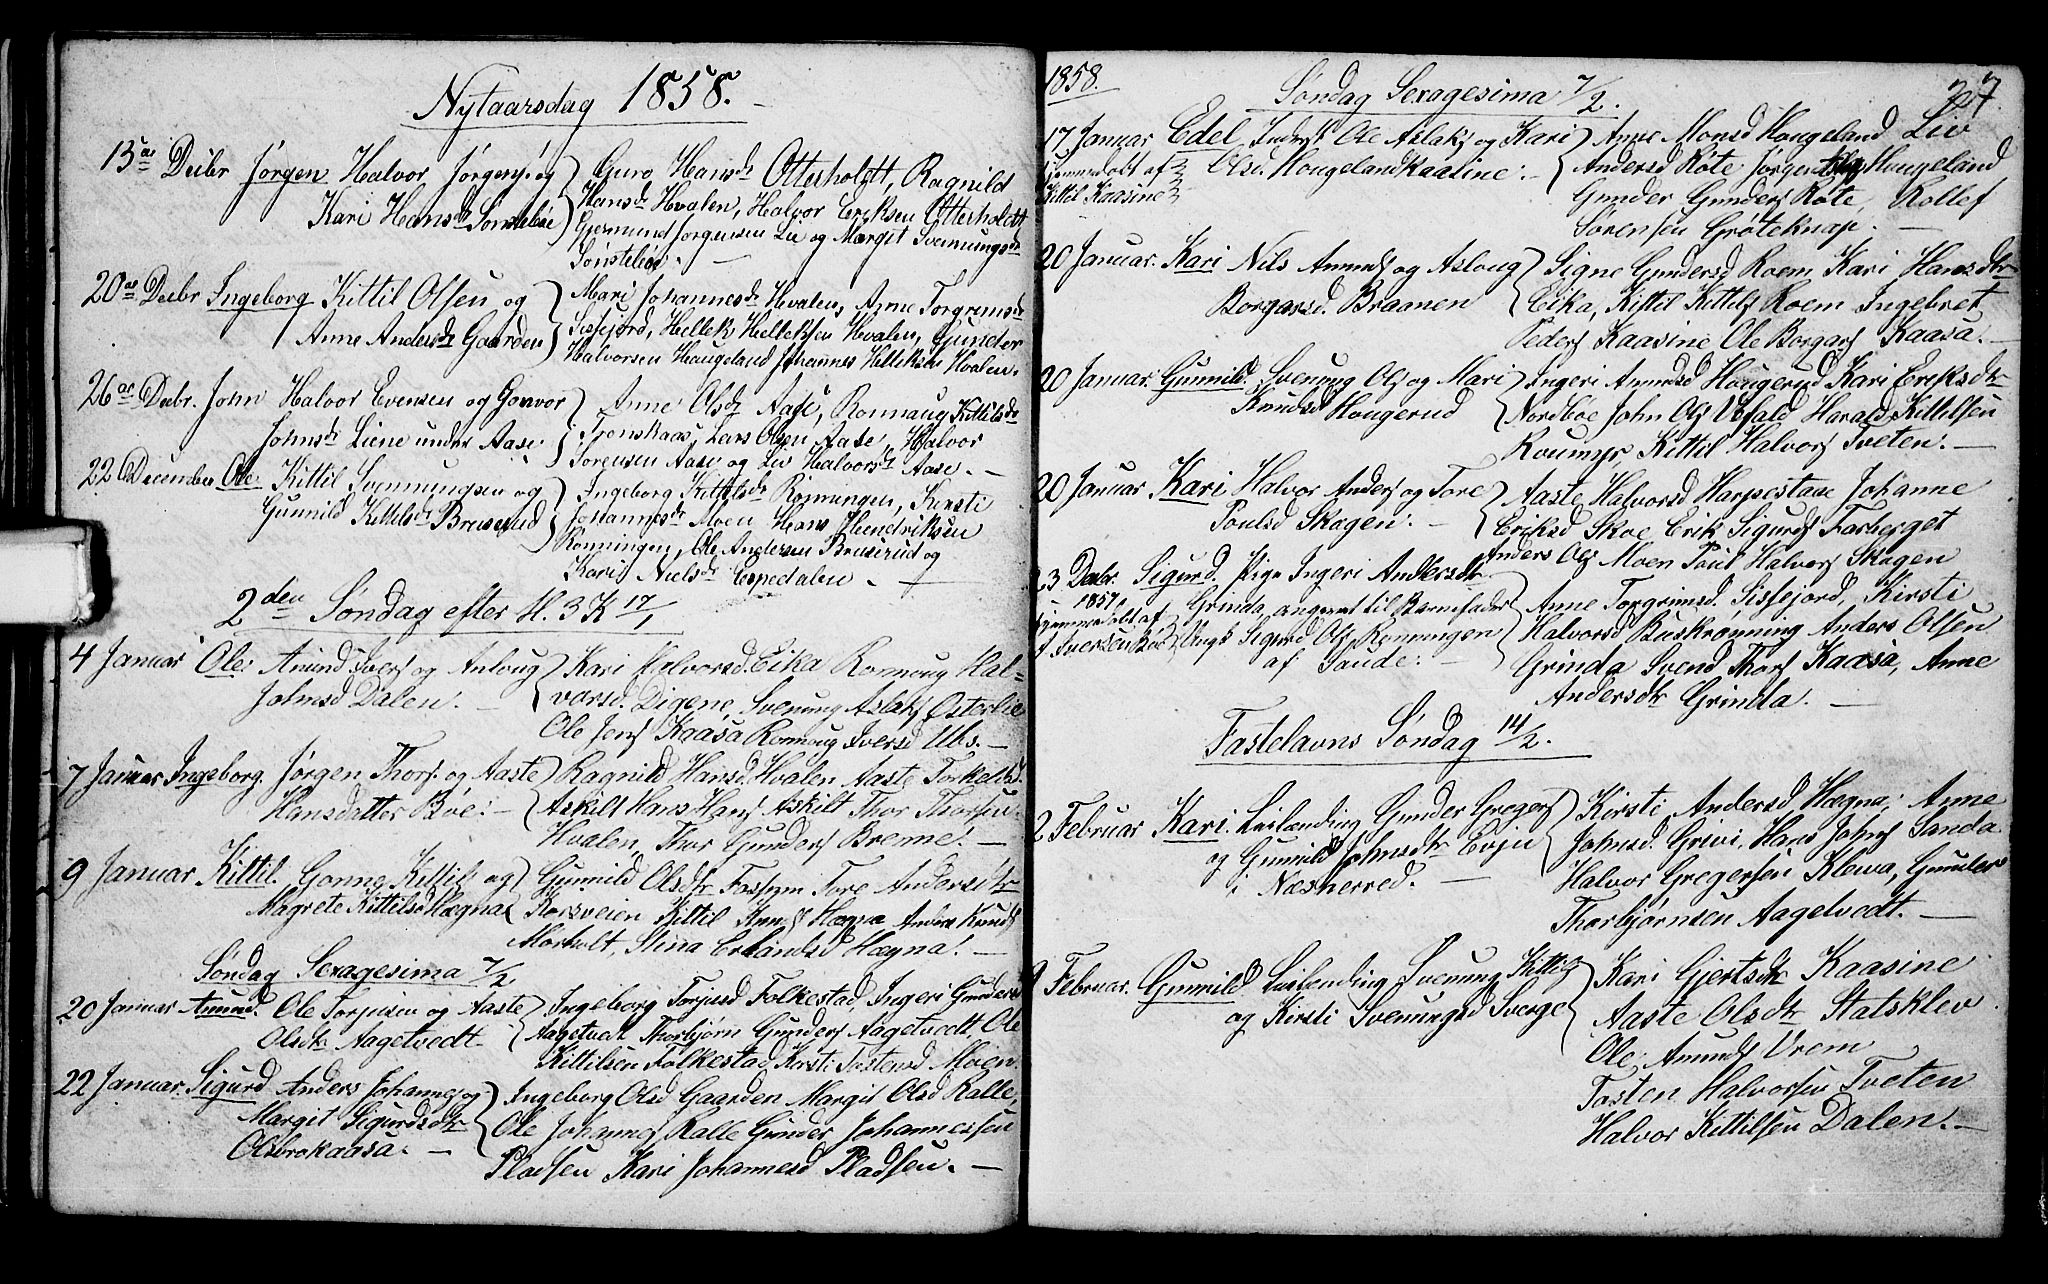 Nytaarsdag 1858.
13de Decbr Jørgen Halvor Jørgens. og
Kari Hansdr Sønstebøe
Guro Hansdr Otterholdtt, Ragnild
Hansdr Hvalen, Halvor Eriksen Otterholdt
Gjermund Jorgensen Lie og Margit Svennungsdr
Sønstebøe. —
20de Decbr Ingeborg Kittil Olsen og
Anne Andersdr Gaarden
Mari Johannesdr Hvalen, Anne Torgrimsdr
Sisfejord, Hellek Helleksen Hvalen, Gunder
Halvorsen Haugeland Johannes Helleksen Hvalen.
26de Decbr. John Halvor Evensen og Gonvor
Johnsdr Liene under Aase.
Anne Olsdr Aase, Ronnaug Kittilsdr
Lars Olsen Aase, Halvor
Sorensen Aase og Liv Halvorsdr Aase. —
22 December Ole. Kittil Svennungsen og
Gunnild Kittilsdr Bruserud
Ingeborg Kittelsdr Rönningen, Kirsti
Johannesdr Moen Hans Hendriksen
Ronningen, Ole Andersen Bruserud og
Kari Nielsdr Espedalen. —
2den Søndag efter H. 3 K 17/1
4 Januar Ole. Amund Ivers og Anloug
Johnsd Dalen. —
Kari Halvorsd. Eika Ronnoug Hal-
vorsd. Digene Svenung Aslaks Osterlie
Ole Jens Kaasa Ronnoug Iversd Ubs. —
7 Januar Ingeborg. Jørgen Thors. og Aaste
Hansdatter Bøe. —
Ragnild Hansd Hvalen Aaste Torkelsd.
Askilt Hans Hans Askilt Thor Thorsen
Hvalen, Thor Gunders Brenne. —
9 Januar Kittil. Gonne Kittils og
Magrete Kittilsd Hægna
Gunnild Olsdtr Fossum Tore Andersdtr
Korsveien Kittil Knuds Hægna Anders Knuds
Morholt, Stina Erlandsd Hægna. —
Søndag Sexagesima 7/2
20 Januar Amund. Ole Torjusen og Aaste
Olsdtr Aagetvedt.
Ingeborg Torjusd Folkestad, Ingeri Gundersd
Aagetvedt Thorbjørn Gunders Aagetvedt Ole
Kittilsen Folkestad Kirsti Tostensd Moen.
22 Januar. Sigurd Anders Johannes og
Margit Sigurdsdtr
Olsbrokaasa. —
Ingeborg Olsd Gaarden Margit Olsd Kalle,
Ole Johannes Kalle Gunder Johannessen
Pladsen Kari Johannesd Pladsen. —
1858. Søndag Sexagesima 7/2. 27
17 Januar Edel Inderst Ole Aslaks og Kari
hjemmedøbt af Olsd. Hougelandkaasine. —
Kittil Kaasine
Anne Monsd Hougeland Liv
Andersd Rote Jørgen Haugeland
Gunder Gunders Rote, Rollef
Sørensen Grøteknap. —
20 Januar. Kari Nils Amunds og Asloug
Borgarsd. Braanen
Signe Gundersd Roem Kari Hansdtr
Eika, Kittil Kittils Roem Ingebret
Peders Kaasine Ole Borgars Kaasa.
20 Januar. Gunnild. Svenung Ols og Mari
Knudsd Hougerud
Ingeri Amundsd Hougerud Kari Eriksdtr
Nordbøe John Ols Vefald Harald Kittilsen
Kittil Halvors Tveten. —
20 Januar Kari Halvor Anders og Tore
Poulsd Skogen. —
Aaste Halvorsd Harpestane Johanne
Eriksd Skoe Erik Sigurds Farberget
Anders Ols Moen Poul Halvors Skogen
23 Decbr. Sigurd. Pige Ingeri Andersdtr
1857. Grinda, angivet til Barnefader
hjemmedøbt af Ungk Sigurd Ols Ronningen
af Saude. —
Anne Torgrimsd. Sisfejord, Kirsti
Halvorsd Buskrønning Anders Olsen
Grinda Svend Thors Kaasa, Anne
Andersdtr Grinda. —
Fastelavns Søndag 14/2.
2 Februar Kari. Leilænding Gunder Gregers
og Gunnild Johnsdtr Evju
i Næsherred. —
Kirsti Andersd Hægna, Anne
Johnsd. Grivi, Hans Johns Sanda
Halvor Gregersen Kleva, Gunder
Thorbjørnsen Aagetvedt. —
9 Februar. Gunnild Leilending Svenung Kittils
og Kirsti Svenungsd Sverge
Kari Gjertsdtr Kaasine
Aaste Olsdtr Statsklev
Ole Amunds Vrem
Tosten Halvorsen Tveten
Halvor Kittilsen Dalen. —